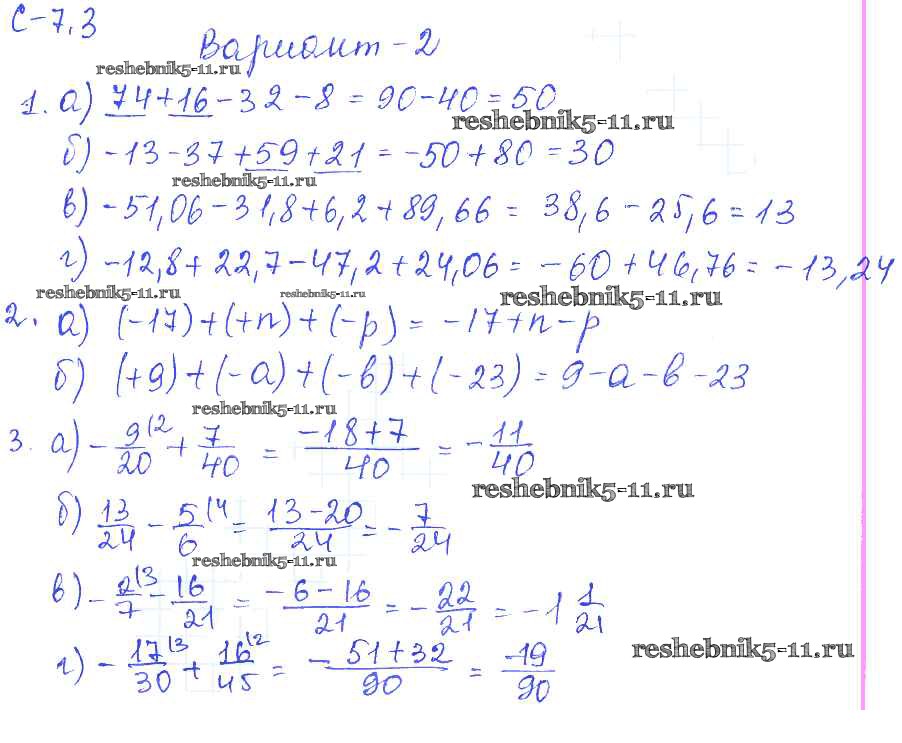 С-7.3
Вариант-2
reshebnik5-11.ru
1. а) 74+16-32-8 = 90-40=50
reshebnik5-11.ru
б) -13-37+59+21 = -50+80 = 30
reshebnik5-11.ru
в) -51,06-31,8+6,2+89,66 = 38,6-25,6=13
г) -12,8+22,7-47,2+24,06= -60+46,76=-13,24
reshebnik5-11.ru reshebnik5-11.ru reshebnik5-11.ru
2. а) (-17)+(+n)+(-p)= -17+n-p
б) (+9)+(-a)+(-в)+(-23)=9-a-в-23
reshebnik5-11.ru
3. а) -9/20 (2 + 7/40 = (-18+7)/40 = -11/40
reshebnik5-11.ru
б) 13/24 - 5/6 (4 = (13-20)/24 = -7/24
reshebnik5-11.ru
в) -2/7 (3 - 16/21 = (-6-16)/21 = -22/21 = -1 1/21
г) -17/30 (3 + 16/45 (2 = (-51+32)/90 = -19/90
reshebnik5-11.ru